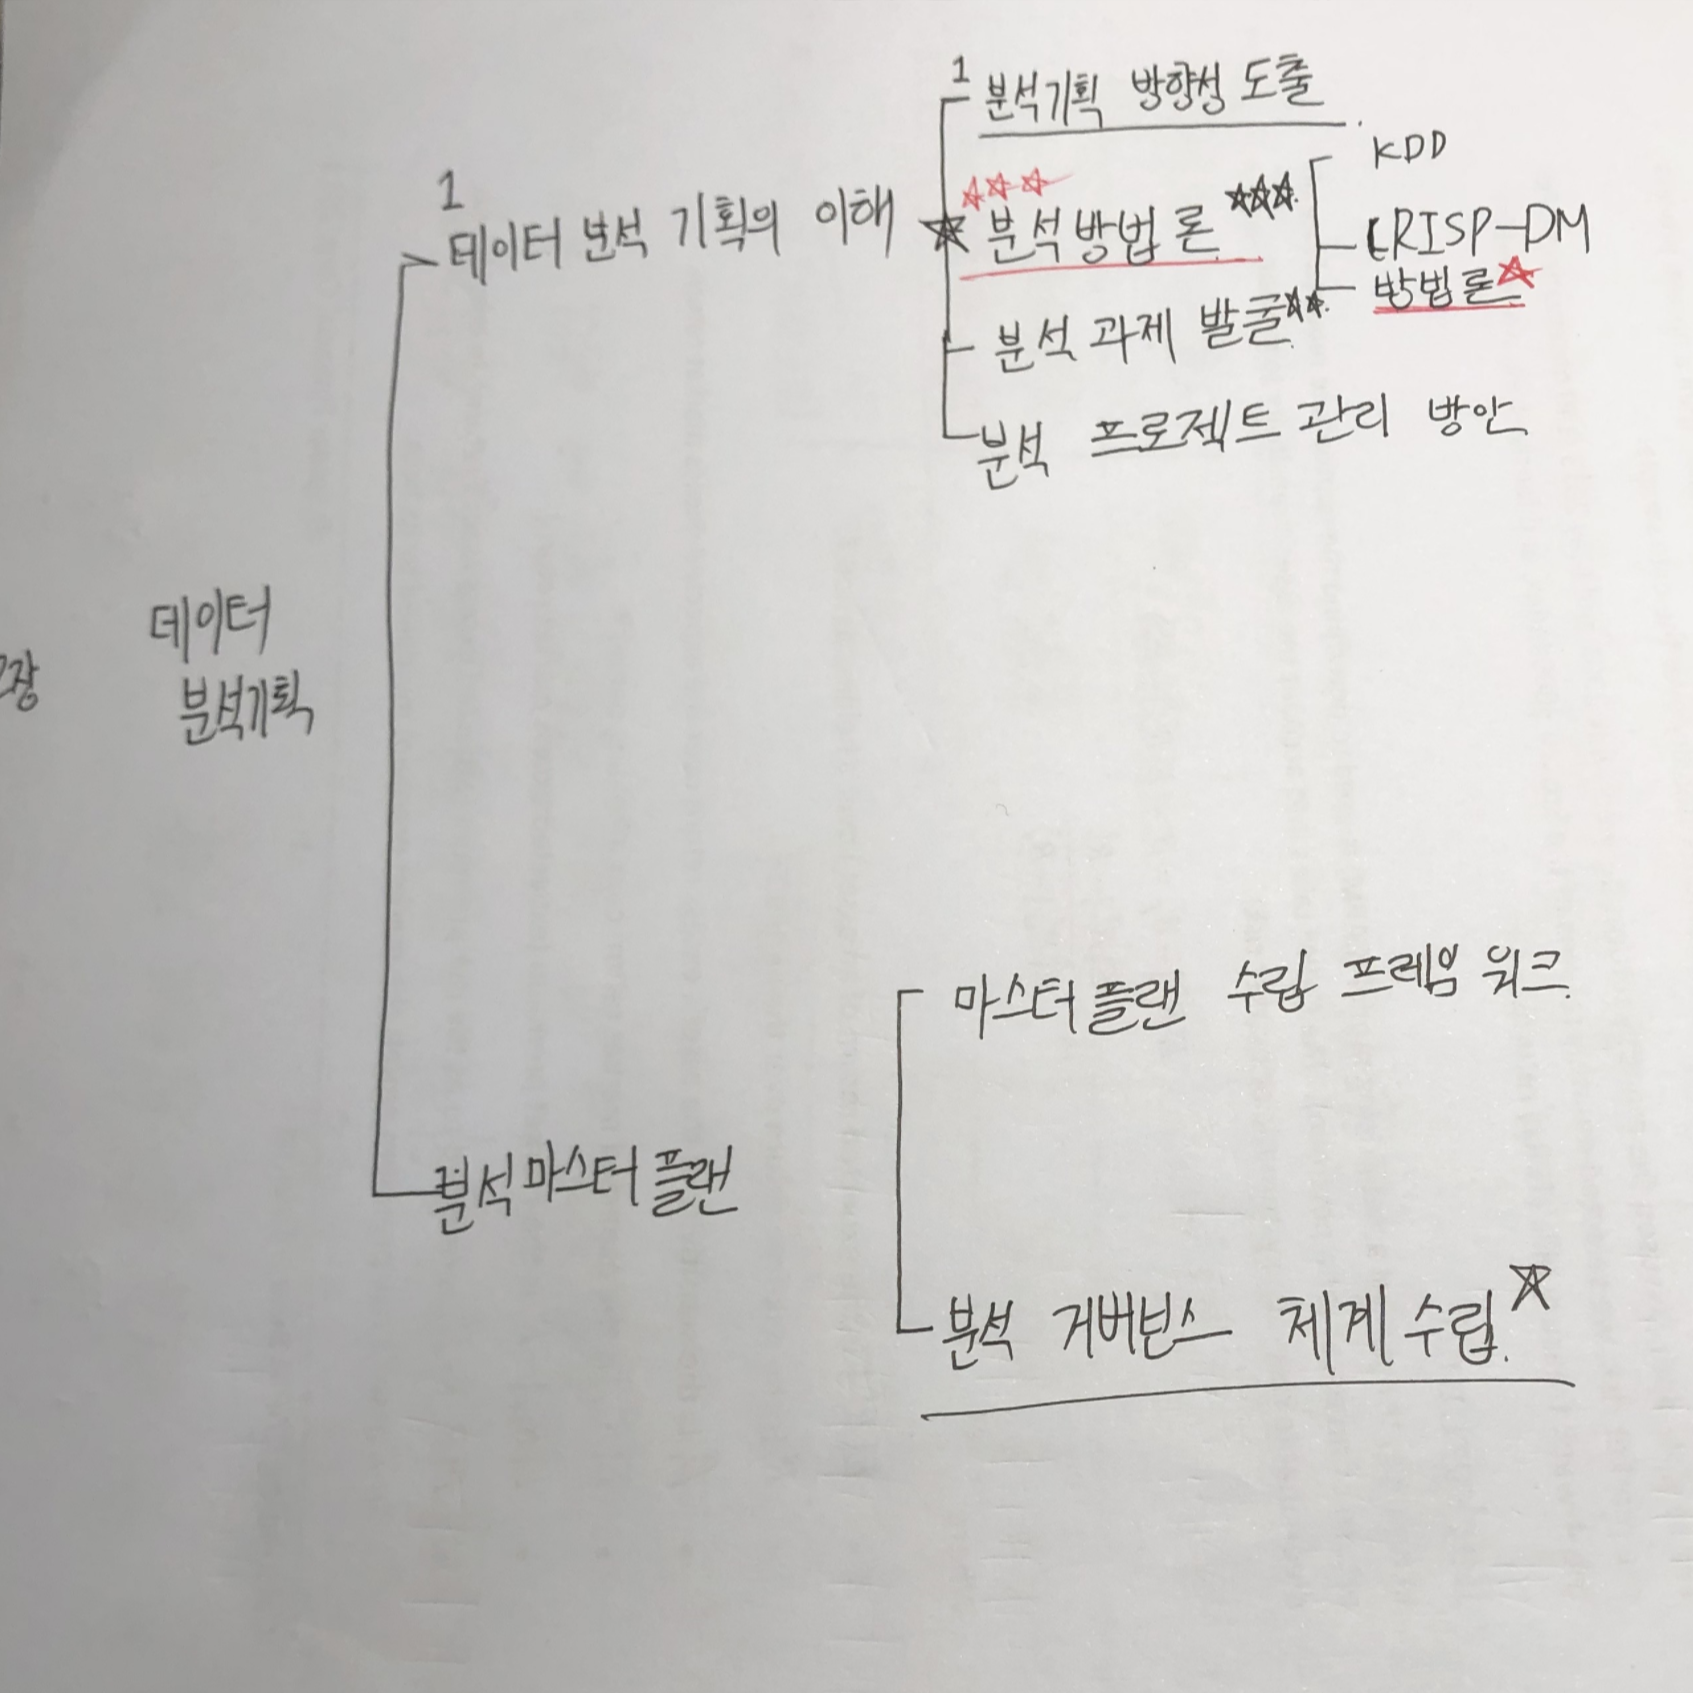 1
분석기획 방향성 도출
KDD
1
데이터 분석 기획의 이해
분석방법론
CRISP-DM
방법론
분석 과제 발굴
분석 프로젝트 관리 방안
데이터
분석기획
2장
마스터플랜 수립 프레임 워크
분석 마스터 플랜
분석 거버넌스 체계 수립